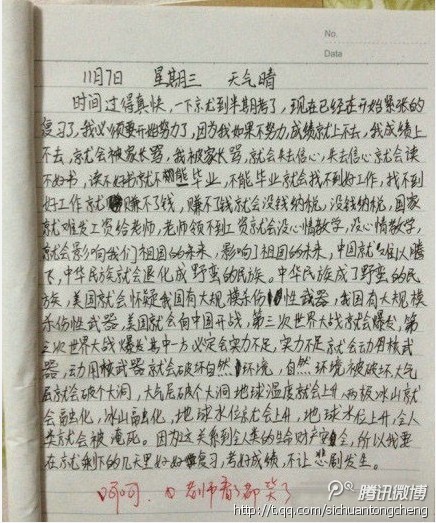 No.
Date
11月7日 星期三 天气晴
时间过得真快,一下就到半期考了,现在已经在开始紧张的
复习了,我必须要开始努力了,因为我如果不努力,成绩就上不去,我成绩上
不去,就会被家长骂,我被家长骂,就会失去信心,失去信心就会读
不好书,读不好书就不能毕业,不能毕业就会找不到好工作,找不到
好工作就赚不了钱,赚不了钱就会没钱纳税,没钱纳税,国家
就难发工资给老师,老师领不到工资就会没心情教学,没心情教学,
就会影响我们祖国的未来,影响了祖国的未来,中国就难以腾
飞,中华民族就会退化成野蛮的民族。中华民族成了野蛮的民
族,美国就会怀疑我国有大规模杀伤性武器,我国有大规模
杀伤性武器,美国就会向中国开战,第三次世界大战就会爆发,第
三次世界大战爆发其中一方必定会实力不足,实力不足就会动用核武
器,动用核武器就会破坏自然环境,自然环境被破坏大气
层就会破个大洞,大气层破个大洞地球温度就会上升,两极冰山就
会融化,冰山融化,地球水位就会上升,地球水位上升,全人
类就会被淹死。因为这关系到全人类的生命财产安全,所以我要
在就剩下的几天里好好复习,考好成绩,不让悲剧发生。
呵呵, 都笑了
腾讯微博
http://t.qq.com/sichuantongcheng